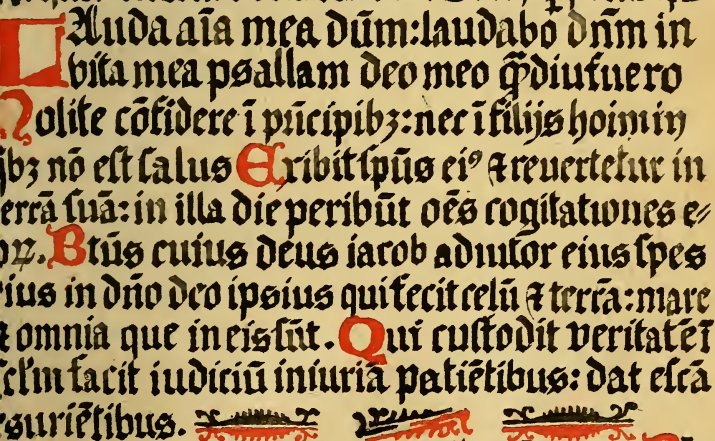 LAuda aīa mea dūm:laudabo dn̄m in
vita mea psallam deo meo q̄diu fuero
Nolite cōfidere ī pⁱncipibꝫ:nec ī filijs hoim in
qͥbꝫ nō eſt ſalus Exibit ſpūs eiꝰ ⁊ reuertetur in
terrā ſuā: in illa die peribūt oēs cogitationes e⸗
oꝝ. Btūs cuius deus iacob adiutor eius ſpes
eius in dn̄o deo ipsius qui fecit celū ⁊ terrā: mare
⁊ omnia que in eis ſūt. Qui cuſtodit veritatē ī
ſcl̄m facit iudiciū iniuriā patiētibus: dat eſcā
eſuriētibus.